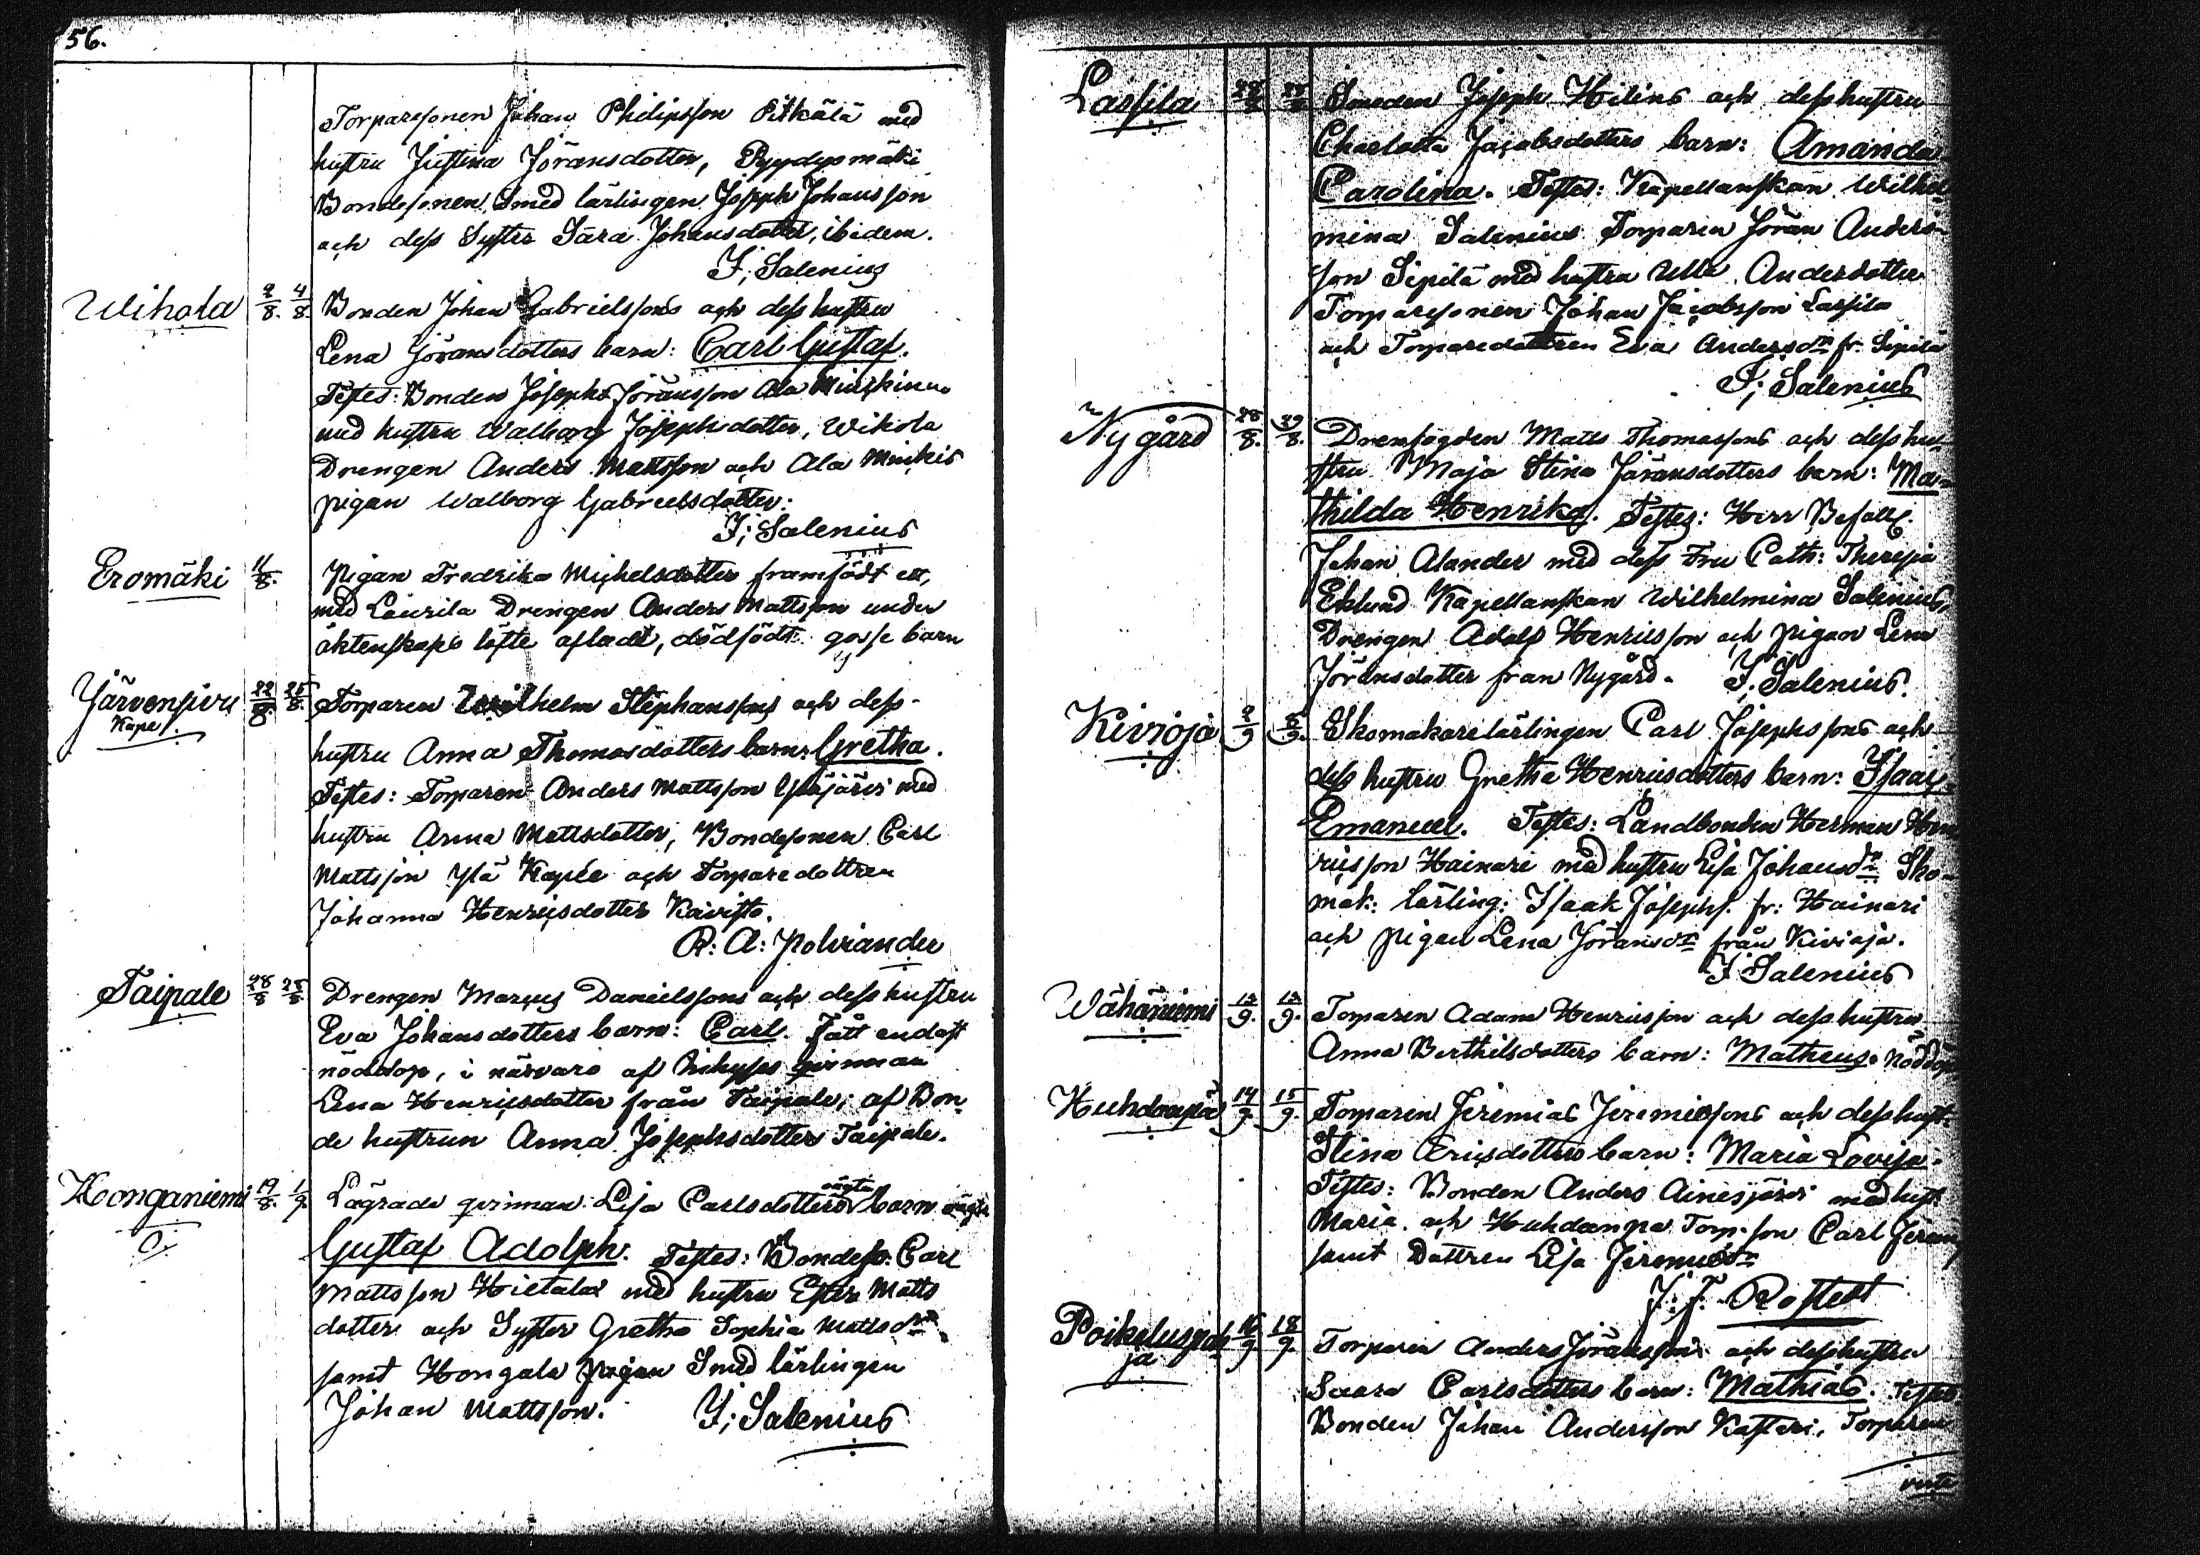 56.
Torparesonen Johan Philipsson Pitkälä med
hustru Justina Jöransdotter, Ryydysmäki
Bondesonen Smed lärlingen Joseph Johansson
och dess Syster Sara Johansdotter, ibidem.
I; Salenius
Wihola 2/8. 4/8. Bonden Johan Gabrielssons och dess hustru
Lena Jöransdotters barn: Carl Gustaf.
Testes: Bonden Josephs Jöransson Ala
med hustru Walborg Josephsdotter, Wikola
Drengen Anders Mattsson och Ala
pigan Walborg Gabrielsdotter:
I; Salenius
Eromäki 11/8. Pigan Fredrika Michelsdotter framfödt ett,
med Laurila Drengen Anders Mattsson under
äktenskaps löfte afladt, dödfödt gosse barn
Järvensivu 22/8. 25/8. Torparen Wilhelm Stephanssons och dess
Kape
hustru Anna Thomasdotters barn: Gretha.
Testes: Torparen Anders Mattsson med
hustru Anna Mattsdotter, Bondesonen Carl
Mattsson Ylä Kapée och Torparedottren
Johanna Henricsdotter Kävistö.
R: A: Polviander
Taipale 28/8 28/8. Drengen Marcus Danielssons och dess hustru
Eva Johansdotters barn: Carl. Fått endast
nöddop, i närvaro af qvinnan
Lena Henricsdotter från Taipale, af Bon-
de hustrun Anna Josephsdotter Taipale.
Honganiemi 19/8. 1/9. Lägrade qvinnan Lisa Carlsdotters oägta barn
Gustaf Adolph. Testes: Bondeso: Carl
Mattsson Hietala med hustru Ester Matts
dotter och Syster Gretha Sophia Mattsdr
samt Hongala pigan Smed lärlingen
Johan Mattsson. I; Salenius
Lassila 28/8 28/8 Smeden Joseph Helins och dess hustru
Charlotta Jacobsdotters barn: Amanda
Carolina. Testes: Kapellanskan Wilhel
mina Salenius Torparen Jöran Anders-
son Sipilä med hustru Ulla Andersdotter
Torparesonen Johan Jacobsson Lassila
och Torparedottren Eva Andersdr fr: Sipilä
I; Salenius
Nygård 28/8. 29/8. Drengfogden Matts Thomassons och dess hu-
stru Maja Stina Jöransdotters barn: Ma-
thilda Henrika. Testes: Herr Befallg.
Johan Alander med dess Fru Cath: Theresia
Eklund Kapellanskan Wilhelmina Salenius,
Drengen Adolf Henricsson och pigan Lena
Jöransdotter från Nygård. I: Salenius.
Kivioja 2/9 5/9. Skomakarelärlingen Carl Josephssons och
dess hustru Gretha Henricsdotters barn: Isaac
Emanuel. Testes: Landbonden Herman Hen
ricsson Hainari med hustru Lisa Johansdr Sko-
mak: lärling: Isaak Josephs. fr: Hainari
och pigan Lena Jöransdr från Kivioja.
I Salenius
Wähäniemi 12/9. 12/9. Torparen Adam Henricsson och dess hustru
Anna Berthilsdotters barn: Matheus. Nöddöpt
Huhdanpä 14/9 15/9. Torparen Jeremias Jeremiæsons och dess hust:
Stina Ericsdotters barn: Maria Lovisa.
Testes: Bonden Anders Ainesjärvi med hust:
Maria och Huhdanpä Torp. son Carl Jerem
samt Dottren Lisa Jeremiædr
J. F. Rostedt
Poikelusjo
ja 16/9 18/9. Torparen Anders Jöranssons och dess hustru
Saara Carlsdotters barn: Mathias. Testes:
Bonden Johan Andersson Kastari, Torparen
verte